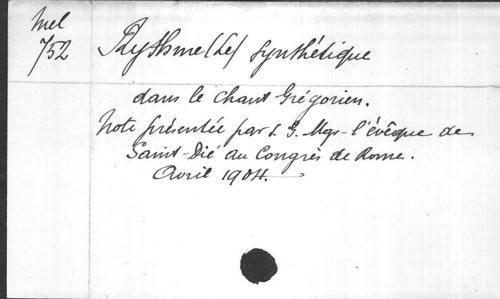 Mel
752
Rythme (Le) synthétique
dans le Chant Grégorien.
Note présentée par S. G. Mgr. l'évêque de
Saint-Dié au Congrès de Rome.
Avril 1904.